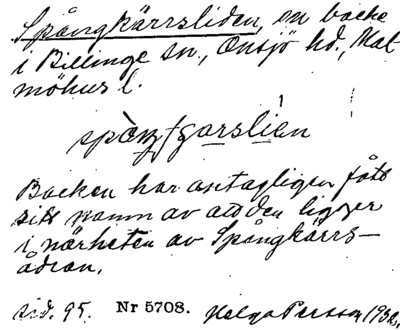 Spångkärrsliden, en backe
i Billinge sn., Onsjö hd., Mal-
möhus l.
Backen har antagligen fått
sitt namn av att den ligger
i närheten av Spångkärrs-
ådran.
sid. 95. Nr 5708. Helga Persson 1932.